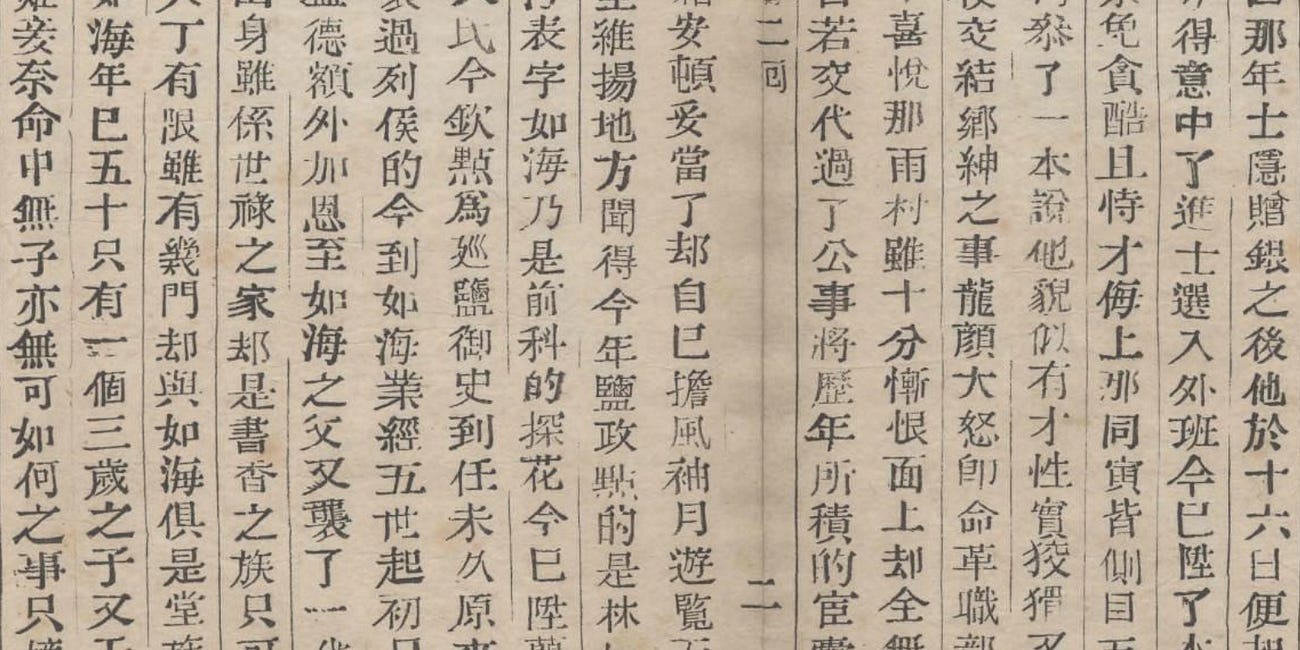 那年士隱贈銀之後他於十六日便起
得意中了進士選入外班今巳陞了本
免貪酷且恃才侮上那同寅皆側目
叅了一本說他貌似有才性實狡猾又
交結鄉紳之事龍顔大怒卽命革職部
喜悅那雨村雖十分慚恨面上却全無
若交代過了公事將歷年所積的宦囊
二囘
二
安頓妥當了却自巳擔風袖月遊覽天
維揚地方聞得今年鹽政㸃的是林如
表字如海乃是前科的探花今巳陞蘭
氏今欽㸃爲廵鹽御史到任未久原來
過列侯的今到如海業經五世起初只
德額外加恩至如海之父又襲了一代
身雖係世祿之家却是書香之族只可
丁有限雖有幾門却與如海俱是堂族
海年巳五十只有一個三歲之子又于
妾奈命中無子亦無可如何之事只嫡